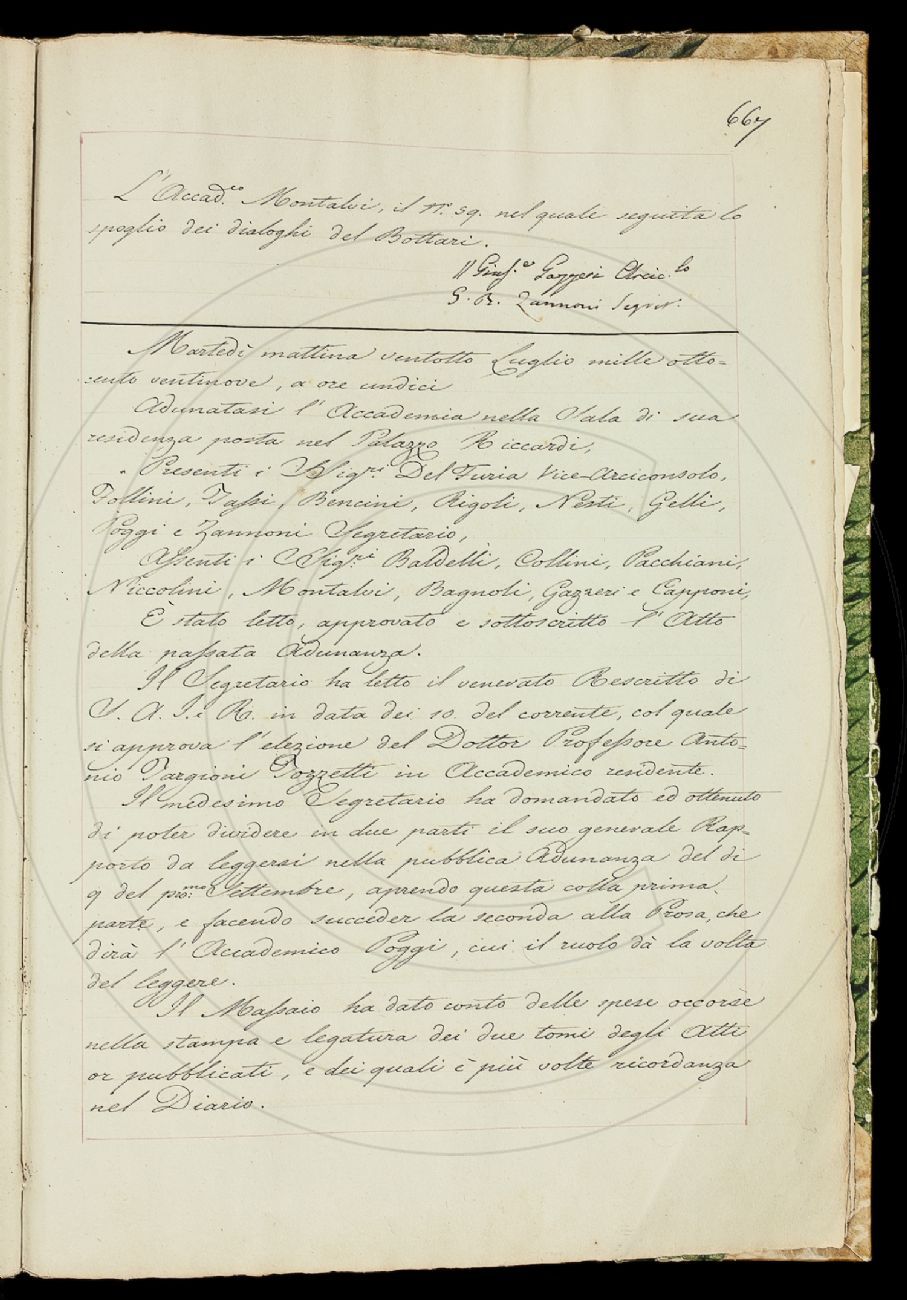 667
L'Accad.co Montalvi, il n. 59. nel quale seguita lo
spoglio dei dialoghi del Bottari.
Gius.e Gazzeri Arcic.lo
G. B. Zannoni Segret.
Martedì mattina ventotto Luglio mille otto=
:cento ventinove, a ore undici
Adunatasi l'Accademia nella Sala di sua
residenza posta nel Palazzo Riccardi,
Presenti i SSig.ri Del Furia Vice-Arciconsolo,
Follini, Tassi, Bencini, Rigoli, Nesti, Gelli,
Poggi e Zannoni Segretario,
Assenti i SSig.ri Baldelli, Collini, Pacchiani,
Niccolini, Montalvi, Bagnoli, Gazzeri e Capponi,
È stato letto, approvato e sottoscritto l'Atto
della passata Adunanza.
Il Segretario ha letto il venerato Rescritto di
S. A. I. e R. in data dei 10. del corrente, col quale
si approva l'elezione del Dottor Professore Anto=
nio Targioni Tozzetti in Accademico residente.
Il medesimo Segretario ha domandato ed ottenuto
di poter dividere in due parti il suo generale Rap=
porto da leggersi nella pubblica Adunanza del dì
9 del pros.mo Settembre, aprendo questa colla prima
parte, e facendo succeder la seconda alla Prosa, che
dirà l'Accademico Poggi, cui il ruolo dà la volta
del leggere.
Il Massaio ha dato conto delle spese occorse
nella stampa e legatura dei due tomi degli Atti
or pubblicati, e dei quali è più volte ricordanza
nel Diario.